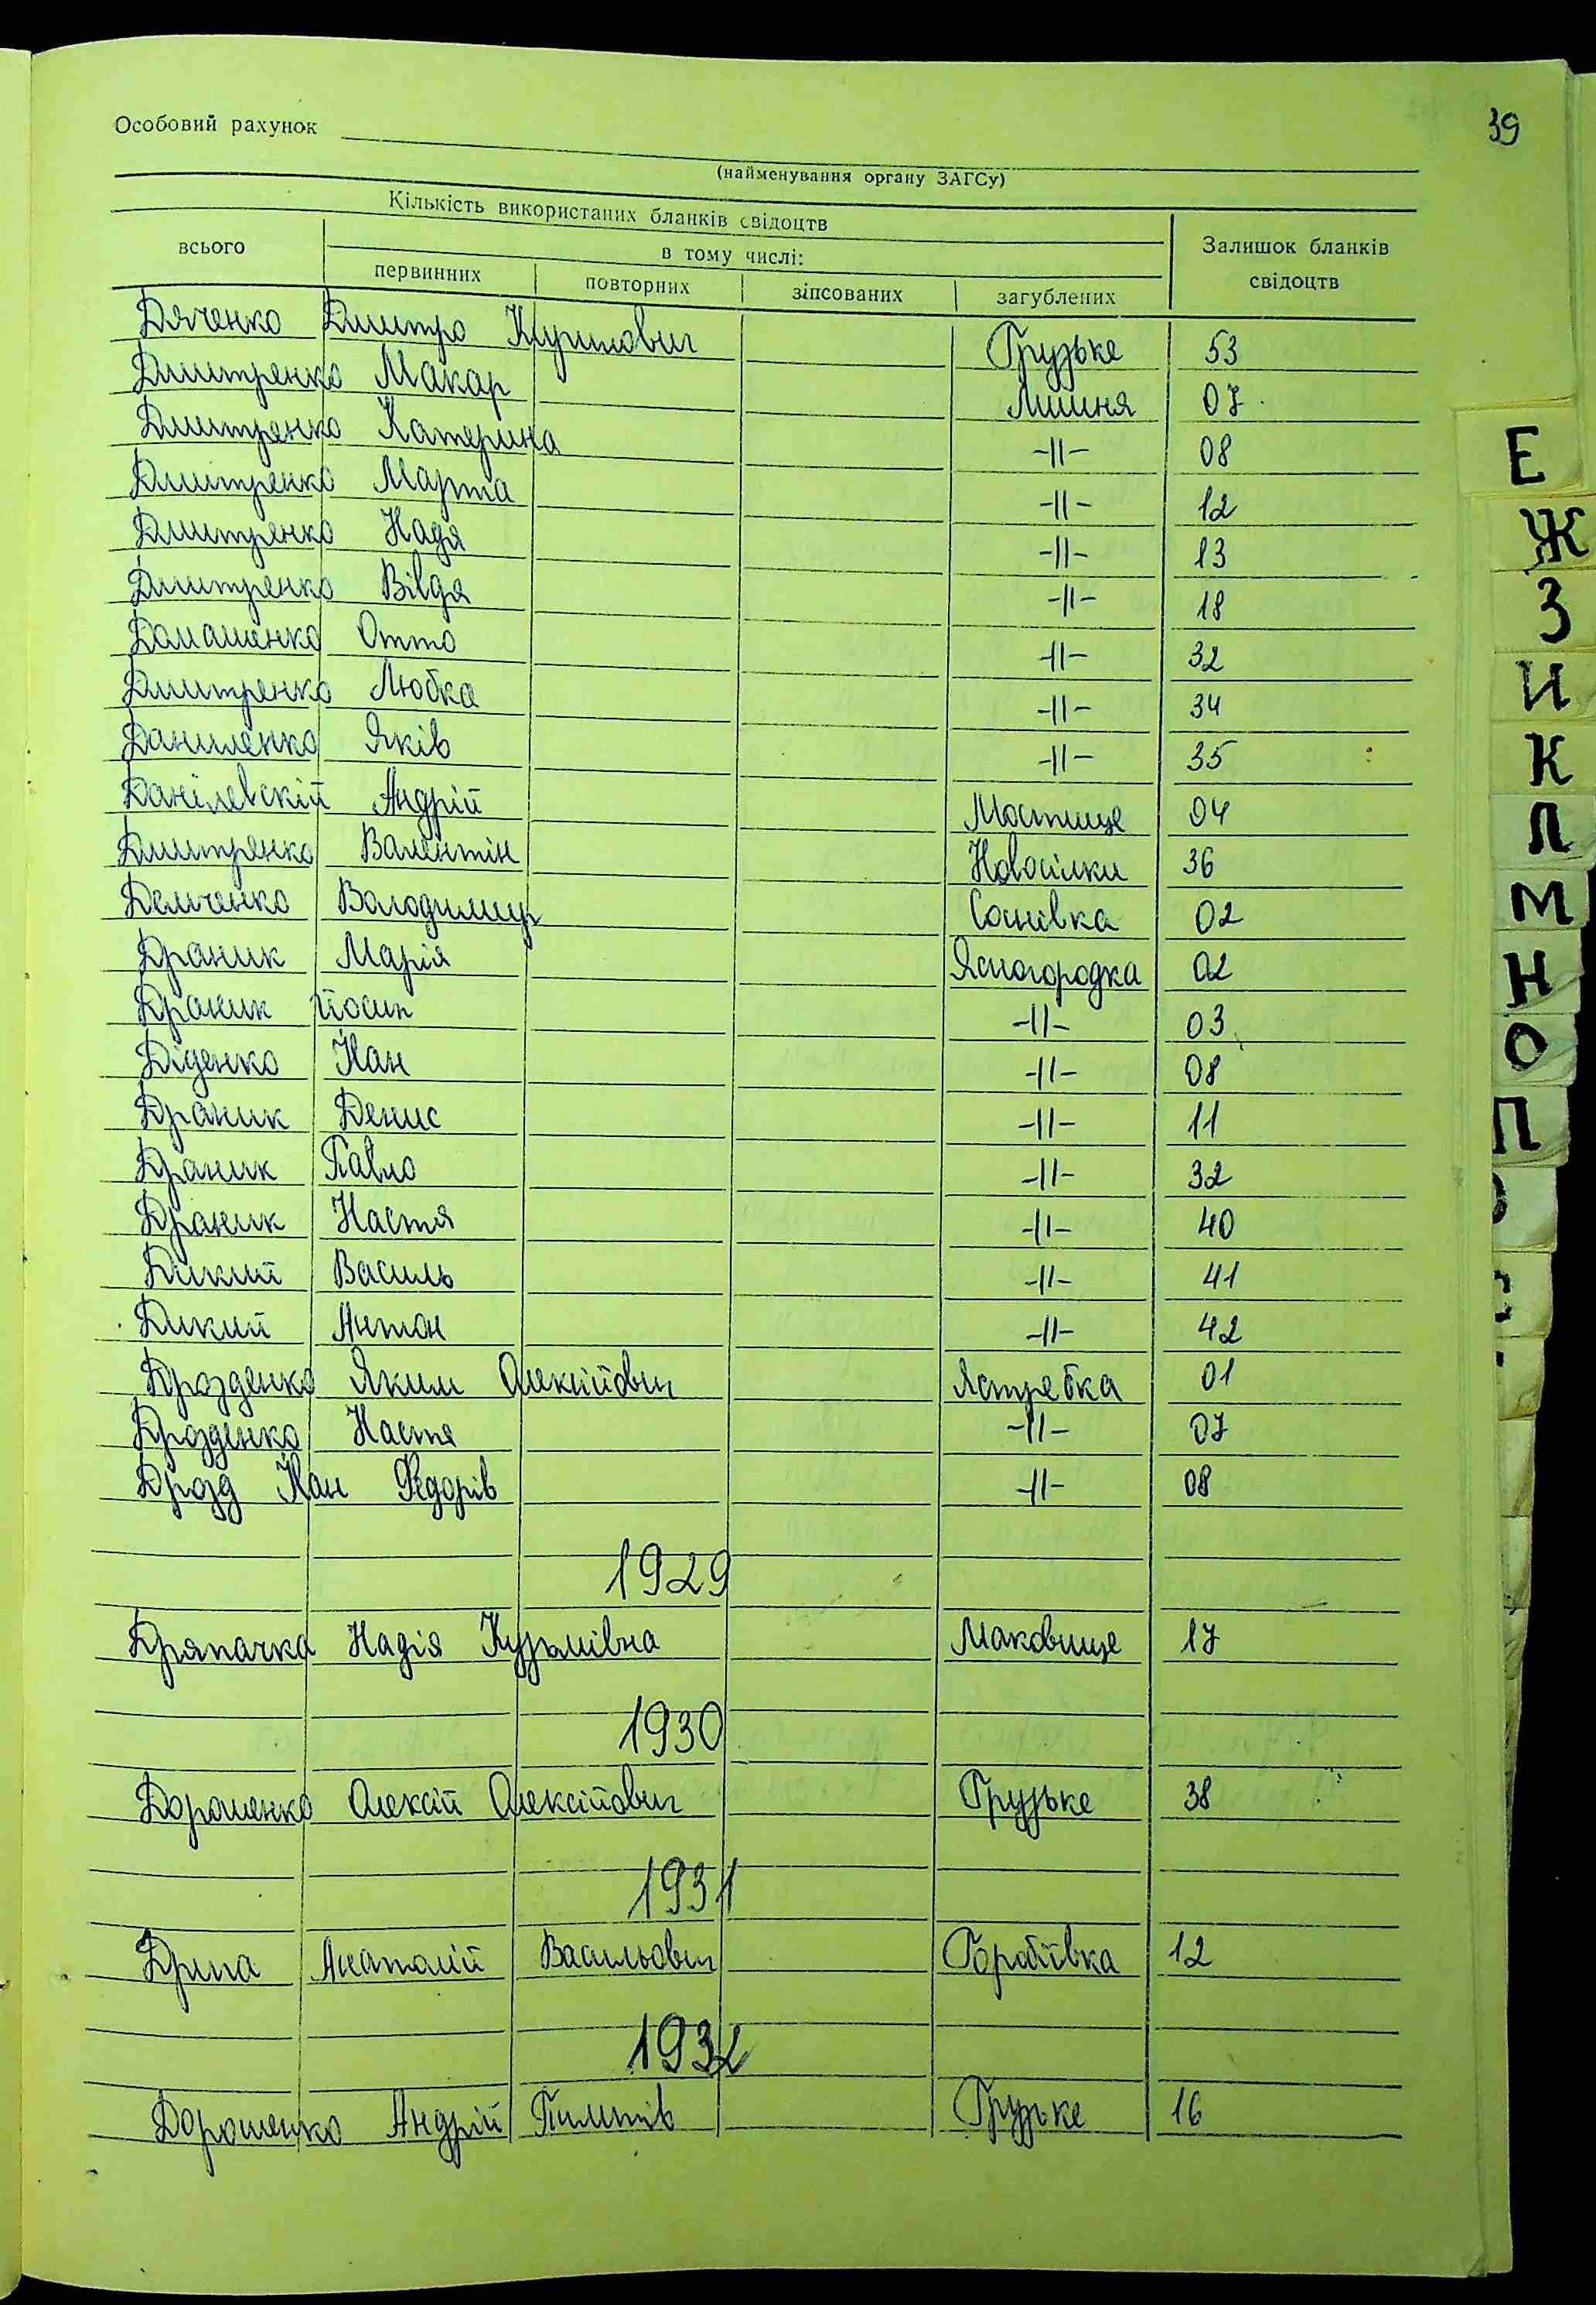 39
Особовий рахунок
(найменування органу ЗАГСу)
Кількість використаних бланків свідоцтв
всього
в тому числі:
Залишок бланків свідоцтв
первинних повторних зіпсованих загублених
Дяченко Дмитро Грузьке 53
Дмитренко Макар Лишня 07
Дмитренко Катерина -11- 08
Дмитренко Марта -11- 12
Дмитренко Надя -11- 13
Дмитренко Вівдя -11- 18
Домашенко Отто -11- 32
Дмитренко Любка -11- 34
Даниленко Яків -11- 35
Данілевскій Андрій Мостище 04
Дмитренко Валентін Новосілки 36
Демченко Володимир Соснівка 02
Драник Марія Ясногородка 02
Драник Йосип -11- 03
Діденко Іван -11- 08
Драник Денис -11- 11
Драник Павло -11- 32
Драник Настя -11- 40
Дикий Василь -11- 41
Дикий Антон -11- 42
Дрозденко Яким Олексійович Ястребка 01
Дрозденко Настя -11- 07
Дрозд Іван Федорів -11- 08
1929
Дряпачка Надія Кузьмівна Маковище 17
1930
Дорошенко Олексій Олексійович Грузьке 38
1931
Дрига Анатолій Васильович Горобіївка 12
1932
Дорошенко Андрій Грузьке 16
Е
Ж
З
И
К
Л
М
Н
О
П